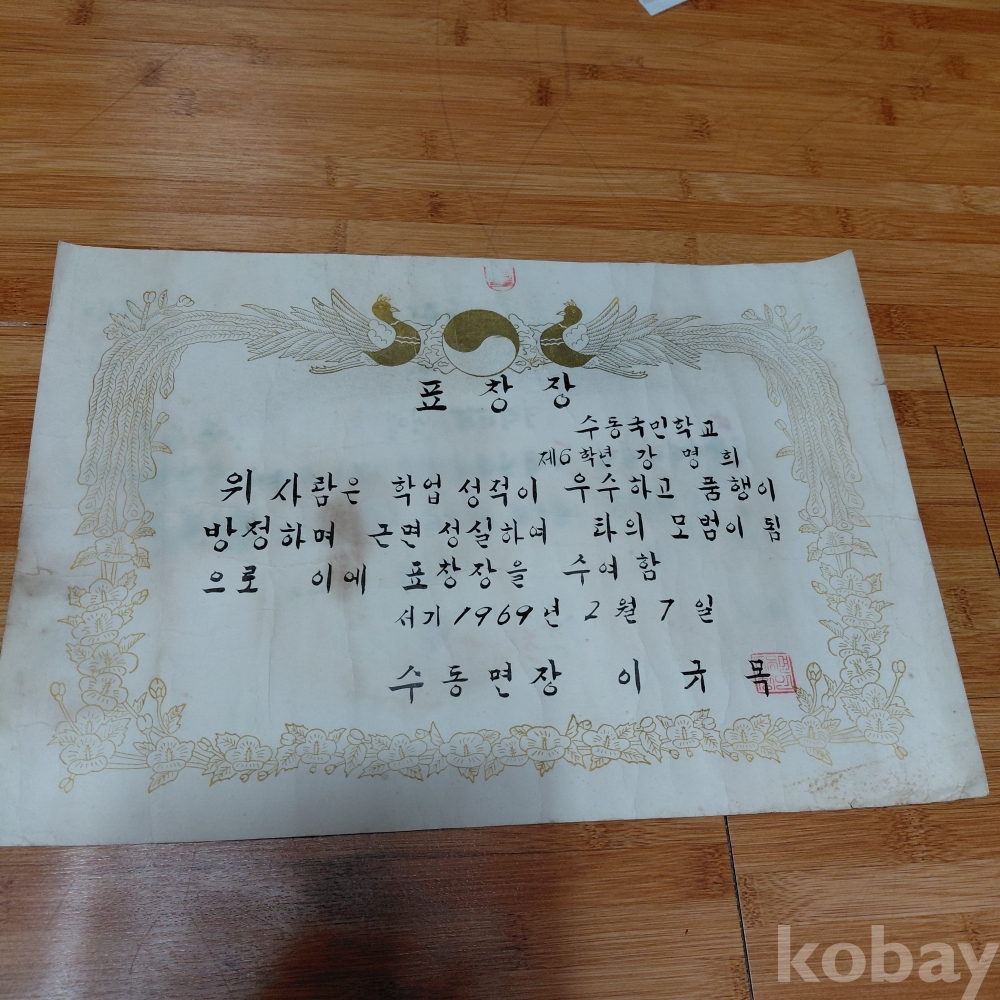 표창장
수동국민학교
제6학년 강명희
위 사람은 학업 성적이 우수하고 품행이
방정하며 근면 성실하여 타의 모범이 됨
으로 이에 표창장을 수여함
서기 1969년 2월 7일
수동면장 이규목
kobay